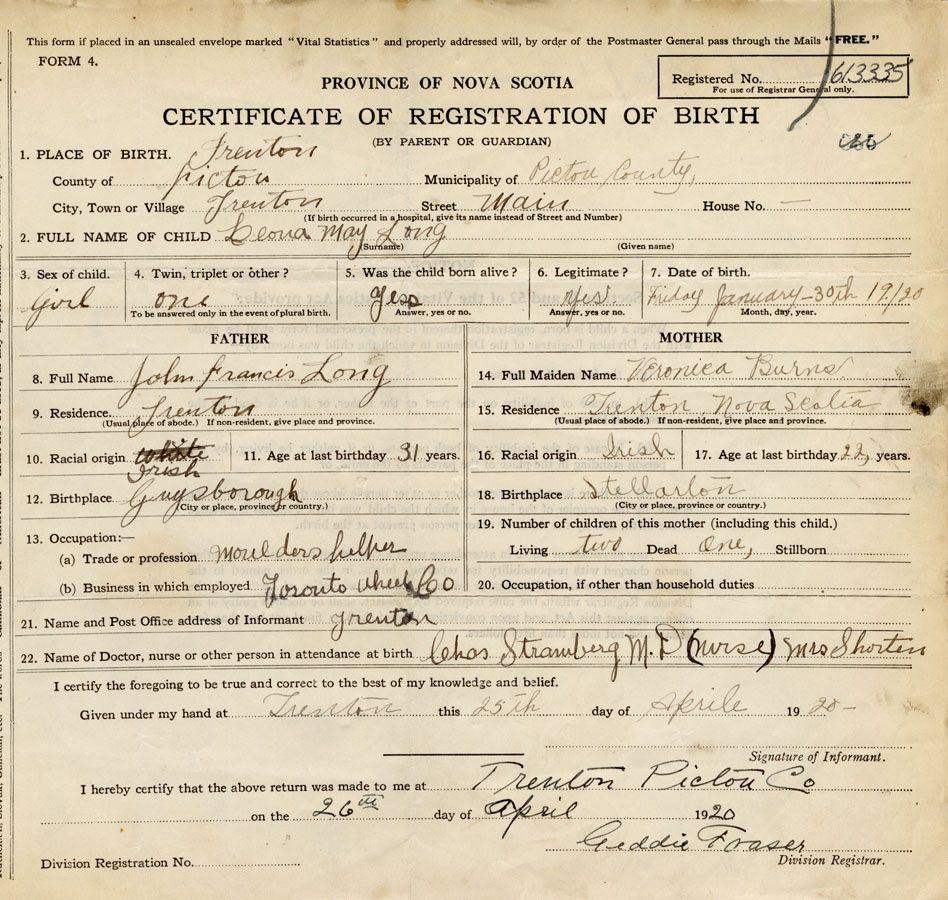 This form if placed in an unsealed envelope marked "Vital Statistics" and properly addressed will, by order of the Postmaster General pass through the Mails "FREE."
FORM 4.
PROVINCE OF NOVA SCOTIA
Registered No. 613335
For use of Registrar General only.
CERTIFICATE OF REGISTRATION OF BIRTH
(BY PARENT OR GUARDIAN)
1. PLACE OF BIRTH. Trenton
County of Pictou Municipality of Pictou County,
City, Town or Village Trenton Street Main House No. —
(If birth occurred in a hospital, give its name instead of Street and Number)
2. FULL NAME OF CHILD Leona May Long
(Surname) (Given name)
3. Sex of child. 4. Twin, triplet or other? 5. Was the child born alive? 6. Legitimate? 7. Date of birth.
Girl one yes yes Friday January-30th 19/20
To be answered only in the event of plural birth. Answer, yes or no. Answer, yes or no. Month, day, year.
FATHER MOTHER
8. Full Name John Francis Long 14. Full Maiden Name Veronica Burns
9. Residence. Trenton 15. Residence Trenton Nova Scotia
(Usual place of abode.) If non-resident, give place and province. (Usual place of abode.) If non-resident, give place and province.
10. Racial origin white 11. Age at last birthday 31 years. 16. Racial origin Irish 17. Age at last birthday 22, years.
Irish
12. Birthplace Guysborough 18. Birthplace Stellarton
(City or place, province or country.) (City or place, province or country.)
13. Occupation:— 19. Number of children of this mother (including this child.)
(a) Trade or profession Moulders helper Living two Dead One, Stillborn
(b) Business in which employed Toronto wheel Co 20. Occupation, if other than household duties
21. Name and Post Office address of Informant Trenton
22. Name of Doctor, nurse or other person in attendance at birth Chas Stramberg M.D (nurse) Mrs Shorten
I certify the foregoing to be true and correct to the best of my knowledge and belief.
Given under my hand at Trenton this 25th day of Aprile 19 20-
Signature of Informant.
I hereby certify that the above return was made to me at Trenton Pictou Co
on the 26th day of April 1920
Geddie Fraser
Division Registration No. Division Registrar.